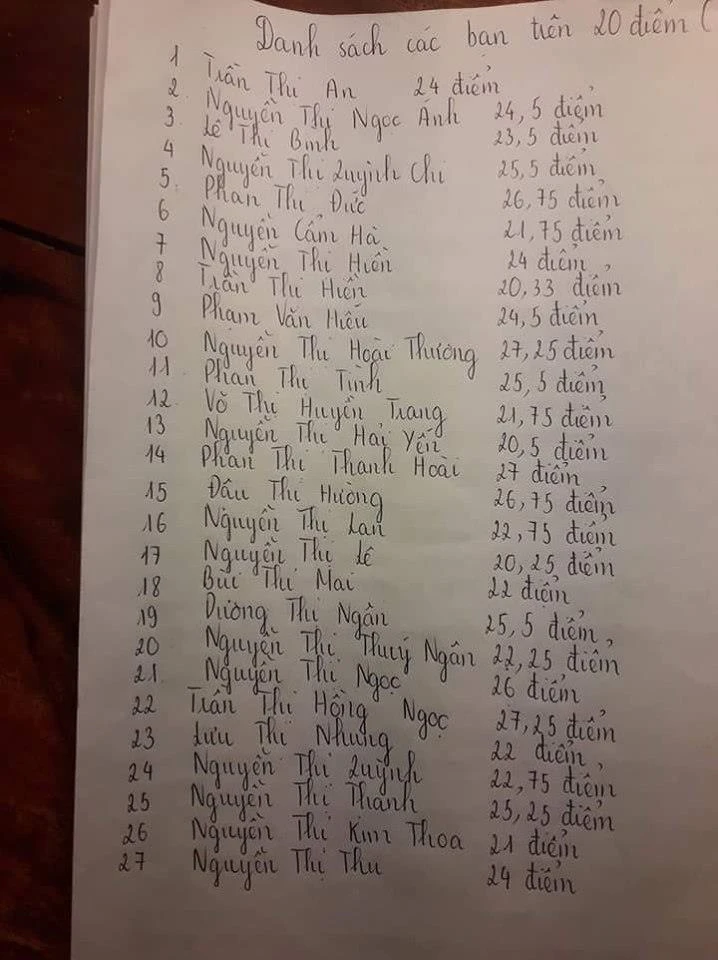 Danh sách các bạn trên 20 điểm (
1 Trần Thị An 24 điểm
2. Nguyễn Thị Ngọc Ánh 24,5 điểm
3. Lê Thị Bình 23,5 điểm
4 Nguyễn Thị Quỳnh Chi 25,5 điểm
5. Phan Thị Đức 26,75 điểm
6 Nguyễn Cẩm Hà 21,75 điểm
7 Nguyễn Thị Hiền 24 điểm
8 Trần Thị Hiền 20,33 điểm
9 Phạm Văn Hiếu 24,5 điểm
10 Nguyễn Thị Hoài Thương 27,25 điểm
11 Phan Thị Tình 25,5 điểm
12 Võ Thị Huyền Trang 21,75 điểm
13 Nguyễn Thị Hải Yến 20,5 điểm
14 Phan Thị Thanh Hoài 27 điểm
15 Đậu Thị Hường 26,75 điểm
16 Nguyễn Thị Lan 22,75 điểm
17 Nguyễn Thị Lê 20,25 điểm
18 Bùi Thị Mai 22 điểm
19 Dương Thị Ngân 25,5 điểm
20 Nguyễn Thị Thuý Ngân 22,25 điểm
21 Nguyễn Thị Ngọc 26 điểm
22 Trần Thị Hồng Ngọc 27,25 điểm
23 Lưu Thị Nhung 22 điểm
24 Nguyễn Thị Quỳnh 22,75 điểm
25 Nguyễn Thị Thanh 25,25 điểm
26 Nguyễn Thị Kim Thoa 21 điểm
27 Nguyễn Thị Thu 24 điểm